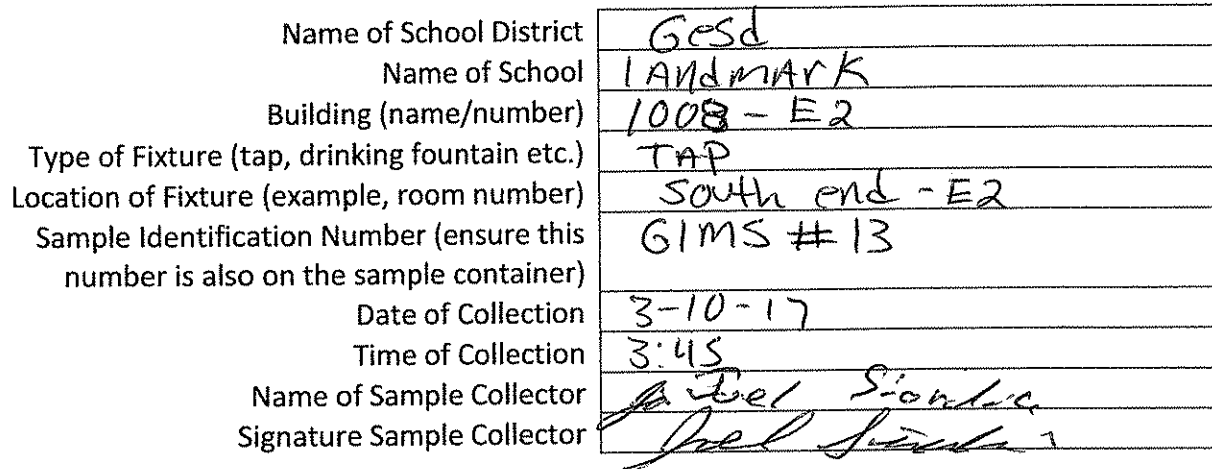 Name of School District Gesd
Name of School lANdmArK
Building (name/number) 1008 - E2
Type of Fixture (tap, drinking fountain etc.) TAP
Location of Fixture (example, room number) South end - E2
Sample Identification Number (ensure this GIMS # 13
number is also on the sample container)
Date of Collection 3-10-17
Time of Collection 3:45
Name of Sample Collector Joel
Signature Sample Collector Joel